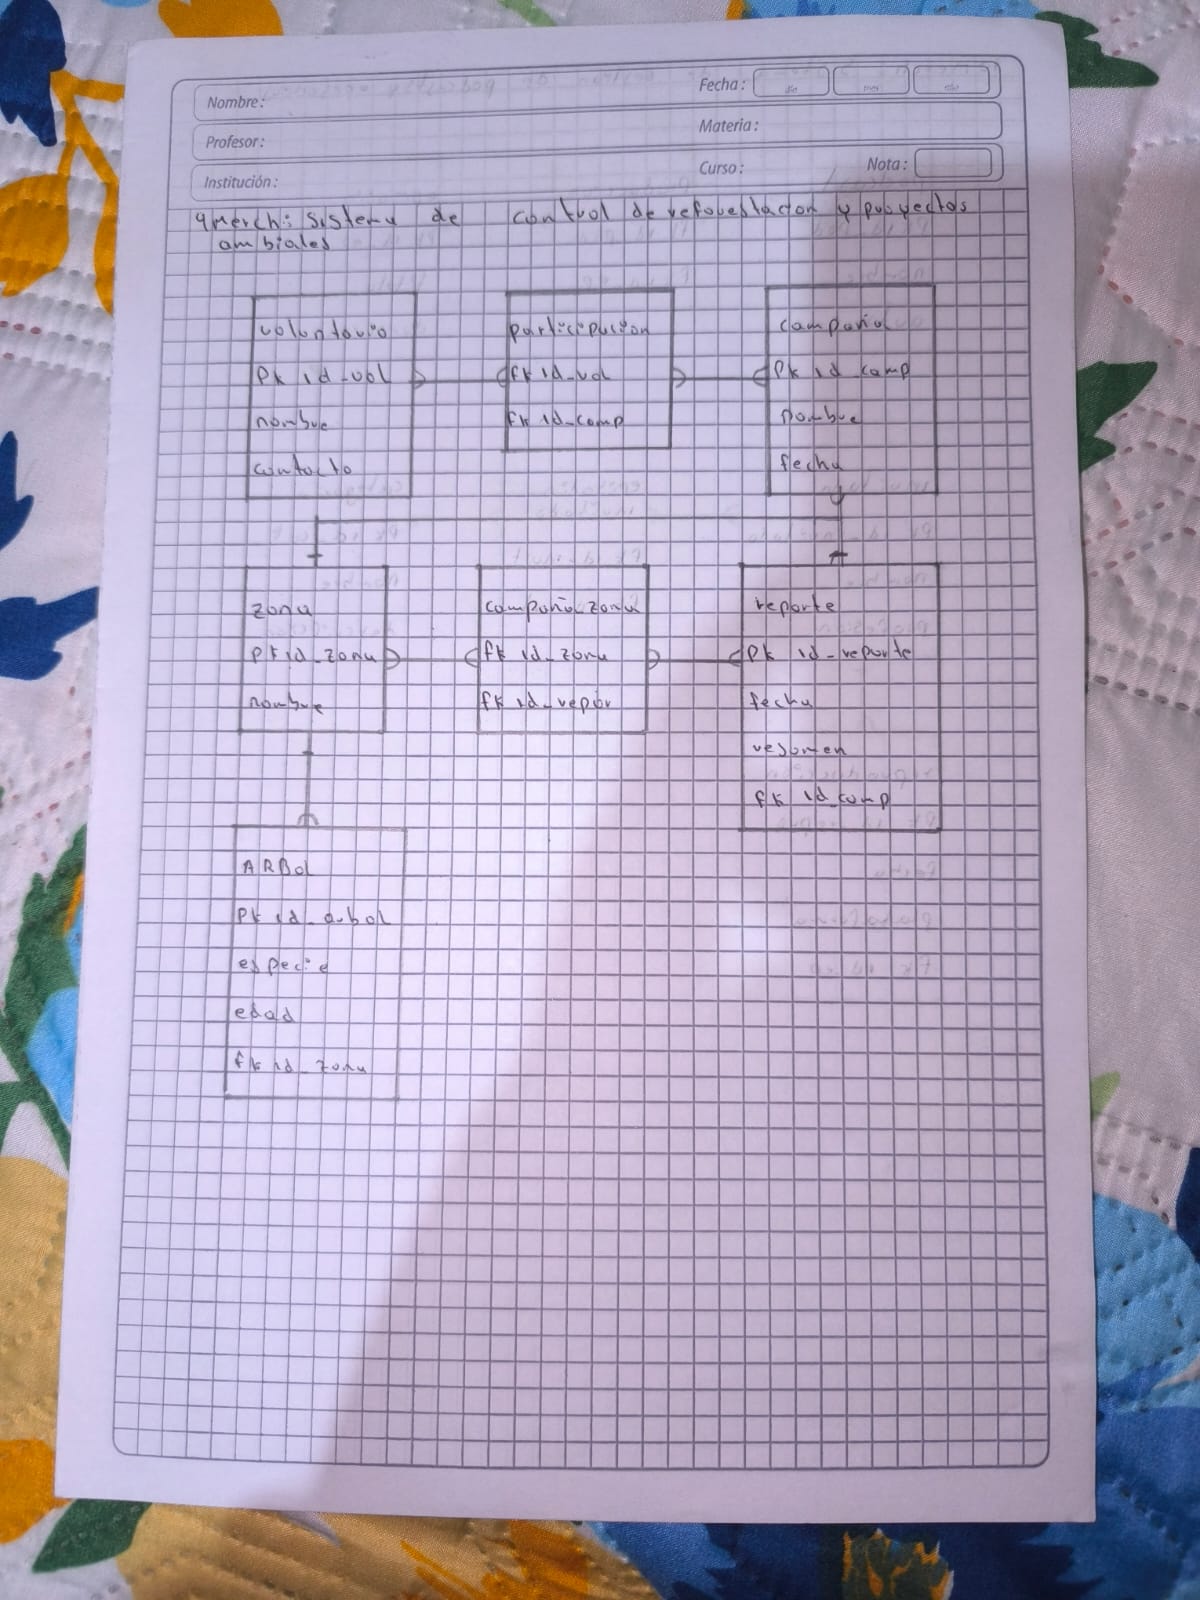 Nombre:
Fecha:
día
mes
año
Profesor:
Materia:
Institución:
Curso:
Nota:
sistema de control de reforestacion y proyectos
ambiales
voluntario
Pk id_vol
nombre
contacto
participacion
fk id_vol
fk id_comp
campaña
Pk id_comp
nombre
fecha
zona
Pk id_zona
nombre
campaña_zona
fk id_zona
fk id_repor
reporte
Pk id_reporte
fecha
resumen
fk id_comp
ARBol
Pk id_arbol
especie
edad
fk id_zona